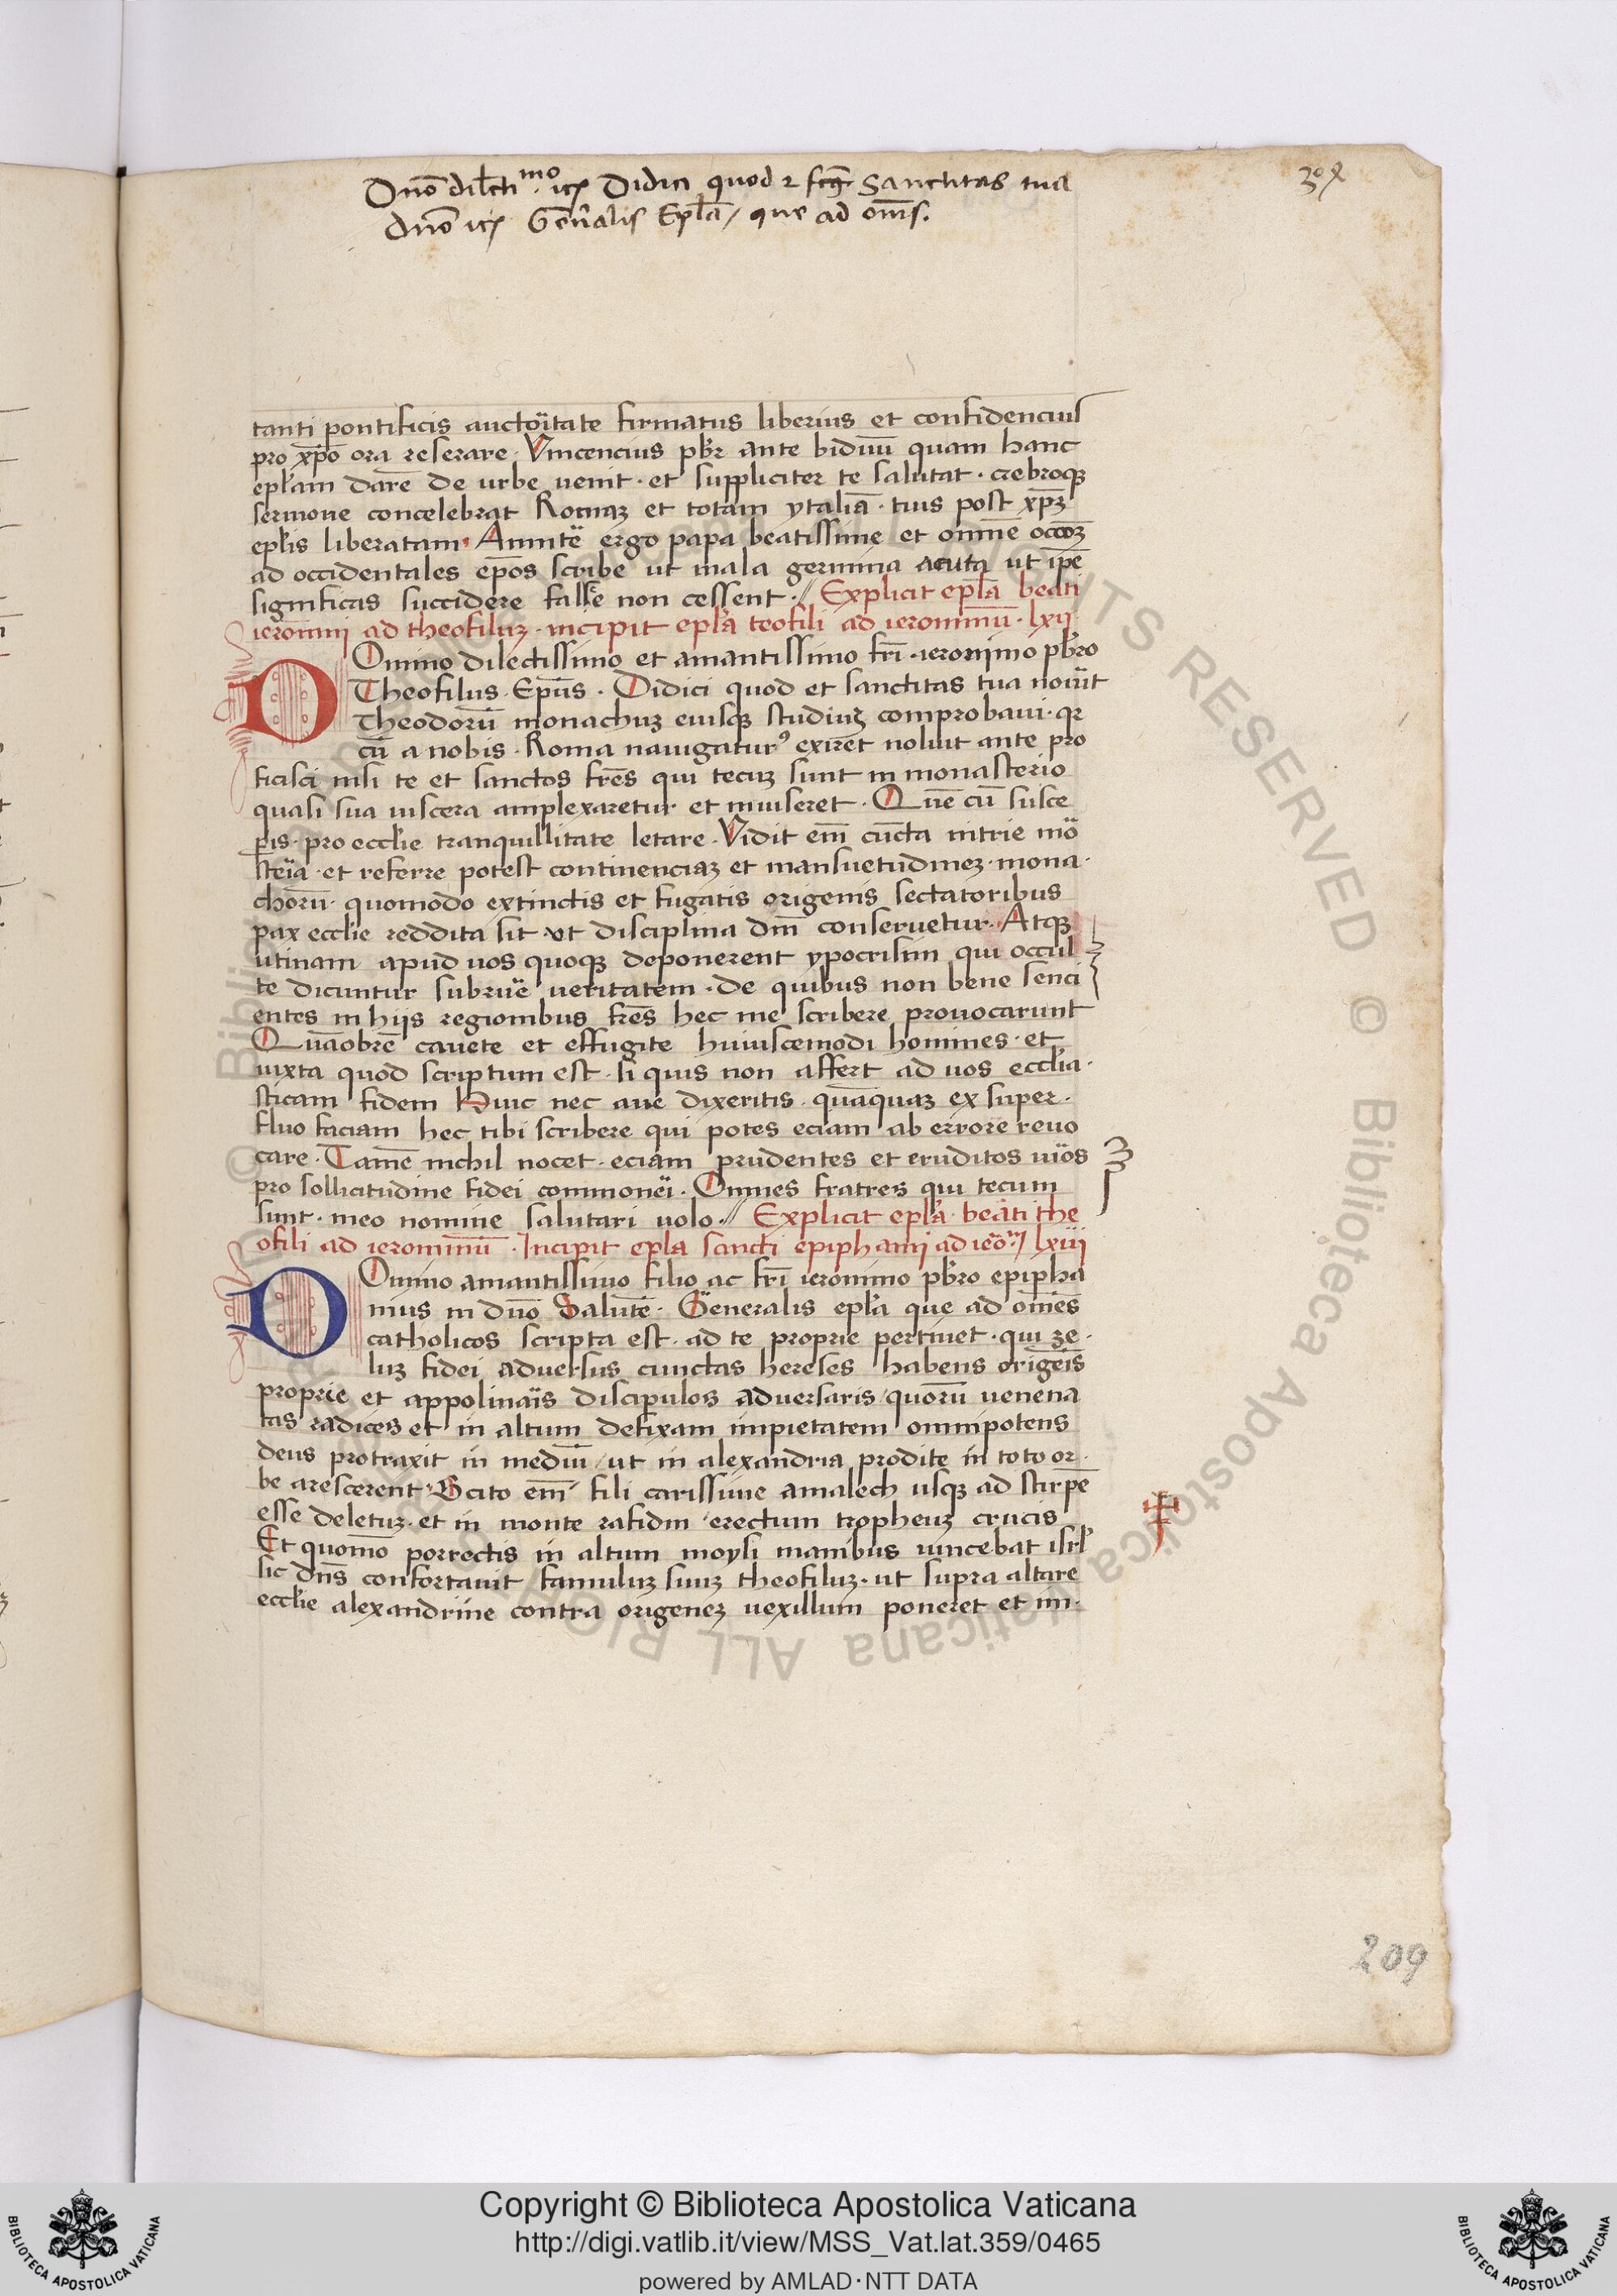 Dno᷑ dilcti mo. iex Didici quod 2 Sanctitas tua
3
dno᷑ Gen̄alis Epl̄a / que ad om̄s.
tanti pontificis auctoitate firmatus liberius et confidencius
pro xp̄o ora reserare · Vincencius pbr̄ ante biduū quam hanc
epl̄am darē de urbe uenit · et suppliciter te salutat · crebroqꝫ
sermone concelebrat Romaꝫ et totam ytaliā · tuis post xp̄ꝫ
epl̄is liberatam · Annitē ergo papa beatissime et omnē
ad occidentales ep̄os scribe ut mala germina acuta ut ip̄e
significas succidere falce non cessent · // Explicit epl̄a beati
ieronimi ad theofiluꝫ · incipit epl̄a teofili ad ieronimū · lxii
DOmino dilectissimo et amantissimo fr̄i · ieronimo pbr̄o
Theofilus · Ep̄us · Didici quod et sanctitas tua nouit
Theodorū monachuꝫ eiusqꝫ studiuꝫ comprobaui · qr
cū a nobis · Roma nauigaturꝰ exiret noluit ante pro
ficisci nisi te et sanctos fr̄es qui tecuꝫ sunt in monasterio
quasi sua uiscera amplexaretur et inuiseret · Quē cū susce
pis · pro eccl̄ie tranquillitate letare · Vidit em̄ cūcta nitrie mō
steia · et referre potest continenciaꝫ et mansuetudineꝫ · mona ·
chorū · quomodo extinctis et fugatis origenis sectatoribus
pax eccl̄ie reddita sit ut disciplina dn̄i conseruetur · Atqꝫ
utinam apud uos quoqꝫ deponerent ypocrisim qui occul
te dicuntur subruē ueritatem · de quibus non bene senci
entes in hijs regionibus fr̄es hec me scribere prouocarunt
Quāobrē cauete et effugite huiuscemodi homines · et
iuxta quod scriptum est · si quis non affert ad uos eccl̄ia ·
sticam fidem Huic nec aue dixeritis · quāquaꝫ ex super ·
fluo faciam hec tibi scribere qui potes eciam ab errore reuo
care · Tamē nichil nocet · eciam prudentes et eruditos uios
pro sollicitudine fidei commonei · Omnes fratres qui tecum
sunt · meo nomine salutari uolo · // Explicit epl̄a beati the
ofili ad ieronimū · Incipit epl̄a sancti epiphani ad ieō / lxiii
DOmino amantissimo filio ac fr̄i ieronimo pbr̄o epipha
nius in dn̄o Salutē · Generalis epl̄a que ad om̄es
catholicos scripta est · ad te proprie pertinet · qui ze ·
luꝫ fidei aduersus cunctas hereses habens origēis
proprie et appolinais discipulos aduersaris / quorū uenena
tas radices et in altum defixam impietatem omnipotens
deus protraxit in mediū / ut in alexandria prodite in toto or ·
be arescerent · Scito em̄ fili carissime amalech usqꝫ ad stirpē
esse deletuꝫ · et in monte rafidin erectum tropheuꝫ crucis
Et quomo᷑ porrectis in altum moysi manibus uincebat isrl̄
sic dn̄s confortauit famuluꝫ suuꝫ theofiluꝫ · ut supra altare
eccl̄ie alexandrine contra origeneꝫ uexillum poneret et im ·
209
Copyright © Biblioteca Apostolica Vaticana
http://digi.vatlib.it/view/MSS_Vat.lat.359/0465
powered by AMLAD·NTT DATA
BIBLIOTECA APOSTOLICA VATICANA
BIBLIOTECA APOSTOLICA VATICANA
© Biblioteca Apostolica Vaticana ALL RIGHTS RESERVED